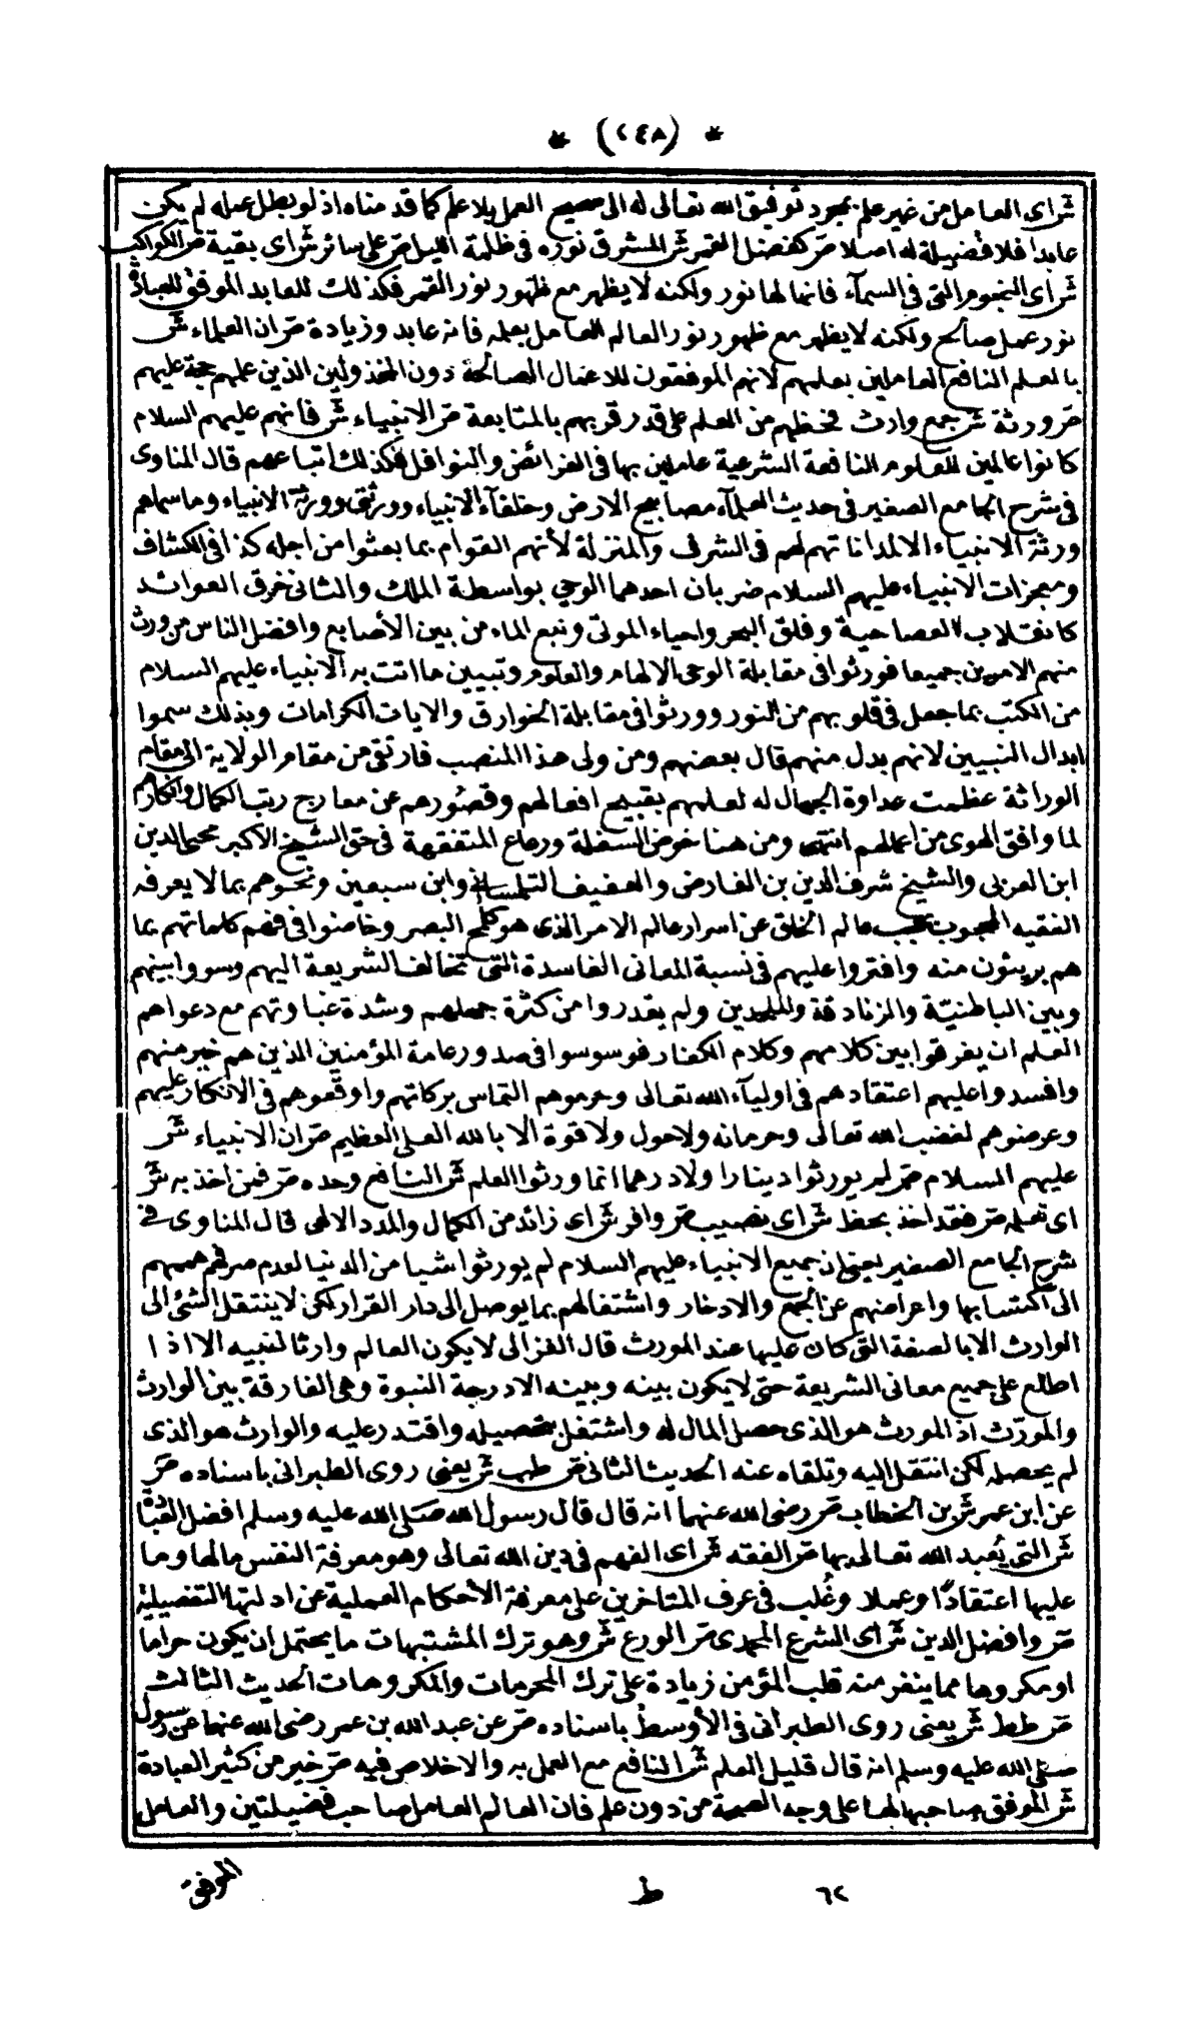 * (٢٤٨) *
ش اى العامل من غير علم بمجرد توفيق الله تعالى له الى صحيح العمل بلا علم كما قدمناه اذ لو بطل عمله لم يكن
عابدا فلا فضيلة له اصلا ص كفضل القمر ش المشرق نوره فى ظلمة الليل ص على سائر ش اى بقية ص الكواكب
ش اى النجوم التى فى السمآء فانما لها نور ولكنه لا يظهر مع ظهور نور القمر فكذلك للعابد الموفق للعبادة
نور عمل صالح ولكنه لا يظهر مع ظهور نور العالم العامل بعلمه فانه عابد وزيادة ص ان العلماء ش
بالعلم النافع العاملين بعلمهم لانهم الموفقون للاعمال الصالحة دون المخذولين الذين علمهم حجة عليهم
ص ورثة ش جمع وارث فحظهم من العلم على قدر قربهم بالمتابعة ص الانبياء ش فانهم عليهم السلام
كانوا عالمين للعلوم النافعة الشرعية عاملين بها فى الفرائض والنوافل فكذلك اتباعهم قال المناوى
فى شرح الجامع الصغير فى حديث العلمآء مصابيح الارض وخلفآء الانبياء وورثتى وورثة الانبياء وما سماهم
ورثة الانبياء الا لمداناتهم لهم فى الشرف والمنزلة لأنهم القوام بما بعثوا من أجله كذا فى الكشاف
ومعجزات الانبياء عليهم السلام ضربان احدهما الوحي بواسطة الملك والثانى خرق العوائد
كانقلاب العصا حية وفلق البحر واحياء الموتى ونبع الماء من بين الأصابع وافضل الناس من ورث
منهم الامرين جميعا فورثوا فى مقابلة الوحى الالهام والعلوم وتبيين ما اتت به الانبياء عليهم السلام
من الكتب بما جعل فى قلوبهم من النور وورثوا فى مقابلة الخوارق والايات الكرامات وبذلك سموا
ابدال النبيين لانهم بدل منهم قال بعضهم ومن ولى هذا المنصب فارتقى من مقام الولاية الى مقام
الوراثة عظمت عداوة الجهال له لعلمهم بقبيح افعالهم وقصورهم عن معارج رتب الكمال وانكارهم
لما وافق الهوى من اعمالهم انتهى ومن هنا خوض السفلة ورعاع المتفقهة فى حق الشيخ الأكبر محيى الدين
ابن العربى والشيخ شرف الدين بن الفارض والعفيف التلمسانى وابن سبعين ونحوهم بما لا يعرفه
الفقيه المحجوب بحجب عالم الخلق عن اسرار عالم الامر الذى هو كلمح البصر وخاضوا فى فهم كلماتهم بما
هم بريئون منه وافتروا عليهم فى نسبة المعانى الفاسدة التى تخالف الشريعة اليهم وسووا بينهم
وبين الباطنيّة والزنادقة والملحدين ولم يقدروا من كثرة جهلهم وشدة غباوتهم مع دعواهم
العلم ان يفرقوا بين كلامهم وكلام الكفار فوسوسوا فى صدور عامة المؤمنين الذين هم خير منهم
وافسدوا عليهم اعتقادهم فى اوليآء الله تعالى وحرموهم التماس بركاتهم واوقعوهم فى الانكار عليهم
وعرضوهم لغضب الله تعالى وحرمانه ولا حول ولا قوة الا بالله العلى العظيم ص ان الانبياء ش
عليهم السلام ص لم يورثوا دينارا ولا درهما انما ورثوا العلم ش النافع وحده ص فمن اخذ به ش
اى تعلمه ص فقد اخذ بحظ ش اى نصيب ص وافر ش اى زائد من الكمال والمدد الالهى قال المناوى فى
شرح الجامع الصغير يعنى ان جميع الانبياء عليهم السلام لم يورثوا شيا من الدنيا لعدم صرفهم هممهم
الى اكتسابها واعراضهم عن الجمع والادخار واشتغالهم بما يوصل الى دار القرار لكن لا ينتقل الشئ الى
الوارث الا بالصفة التى كان عليها عند المورث قال الغزالى لا يكون العالم وارثا لنبيه الا اذا
اطلع على جميع معانى الشريعة حتى لا يكون بينه وبينه الا درجة النبوة وهى الفارقة بين الوارث
والمورّث اذ المورث هو الذى حصل المال له واشتغل بتحصيله واقتدر عليه والوارث هو الذى
لم يحصله لكن انتقل اليه وتلقاه عنه الحديث الثانى ص طب ش يعنى روى الطبرانى باسناده ص
عن ابن عمر ش بن الخطاب ص رضى الله عنهما انه قال قال رسول الله صَلى الله عليه وسلم افضل العبادة
ش التى يُعبد الله تعالى بها ص الفقه ش اى الفهم فى دين الله تعالى وهو معرفة النفس مالها وما
عليها اعتقادًا وعملا وغُلب فى عرف المتاخرين على معرفة الأحكام العملية عن ادلتها التفصيلية
ص وافضل الدين ش اى الشرع المحمدى ص الورع ش وهو ترك المشتبهات ما يحتمل ان يكون حراما
او مكروها مما ينفر منه قلب المؤمن زيادة على ترك المحرمات والمكروهات الحديث الثالث
ص طط ش يعنى روى الطبرانى فى الأوسط باسناده ص عن عبدالله بن عمر رضى الله عنهما عن رسول
صلى الله عليه وسلم انه قال قليل العلم ش النافع مع العمل به والاخلاص فيه ص خير من كثير العبادة
ش الموفق صاحبها لها على وجه الصحة من دون علم فان العالم العامل صاحب فضيلتين والعامل
٦٢ ط الموفق